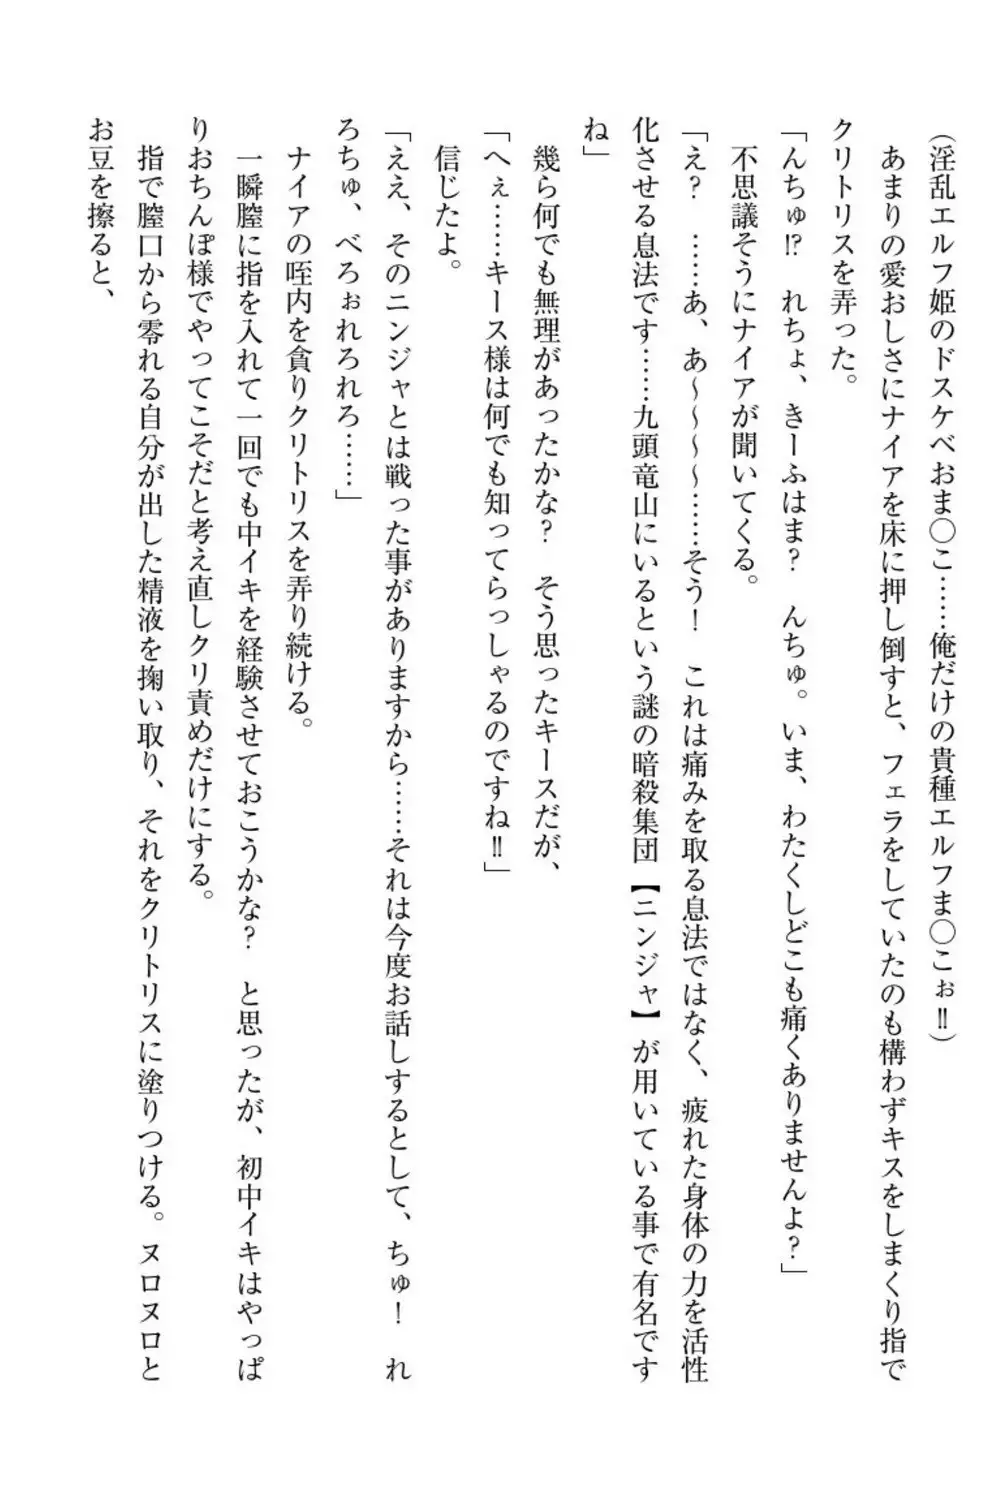 （淫乱エルフ姫のドスケベおま〇こ……俺だけの貴種エルフま〇こぉ‼）
　あまりの愛おしさにナイアを床に押し倒すと、フェラをしていたのも構わずキスをしまくり指で
クリトリスを弄った。
「んちゅ⁉　れちょ、きーふはま？　んちゅ。いま、わたくしどこも痛くありませんよ？」
　不思議そうにナイアが聞いてくる。
「え？　……あ、あ～～～～……そう！　これは痛みを取る息法ではなく、疲れた身体の力を活性
化させる息法です……九頭竜山にいるという謎の暗殺集団【ニンジャ】が用いている事で有名です
ね」
　幾ら何でも無理があったかな？　そう思ったキースだが、
「へぇ……キース様は何でも知ってらっしゃるのですね‼」
　信じたよ。
「ええ、そのニンジャとは戦った事がありますから……それは今度お話しするとして、ちゅ！　れ
ろちゅ、べろぉれろれろ……」
　ナイアの咥内を貪りクリトリスを弄り続ける。
　一瞬膣に指を入れて一回でも中イキを経験させておこうかな？　と思ったが、初中イキはやっぱ
りおちんぽ様でやってこそだと考え直しクリ責めだけにする。
　指で膣口から零れる自分が出した精液を掬い取り、それをクリトリスに塗りつける。ヌロヌロと
お豆を擦ると、